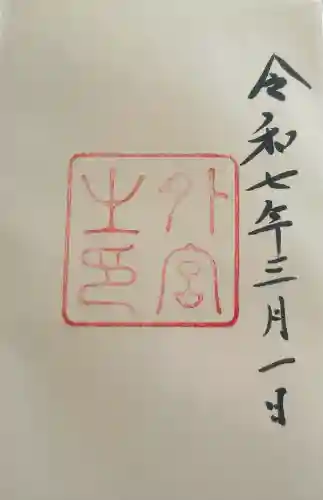 令和七年三月一日
外宮
之印